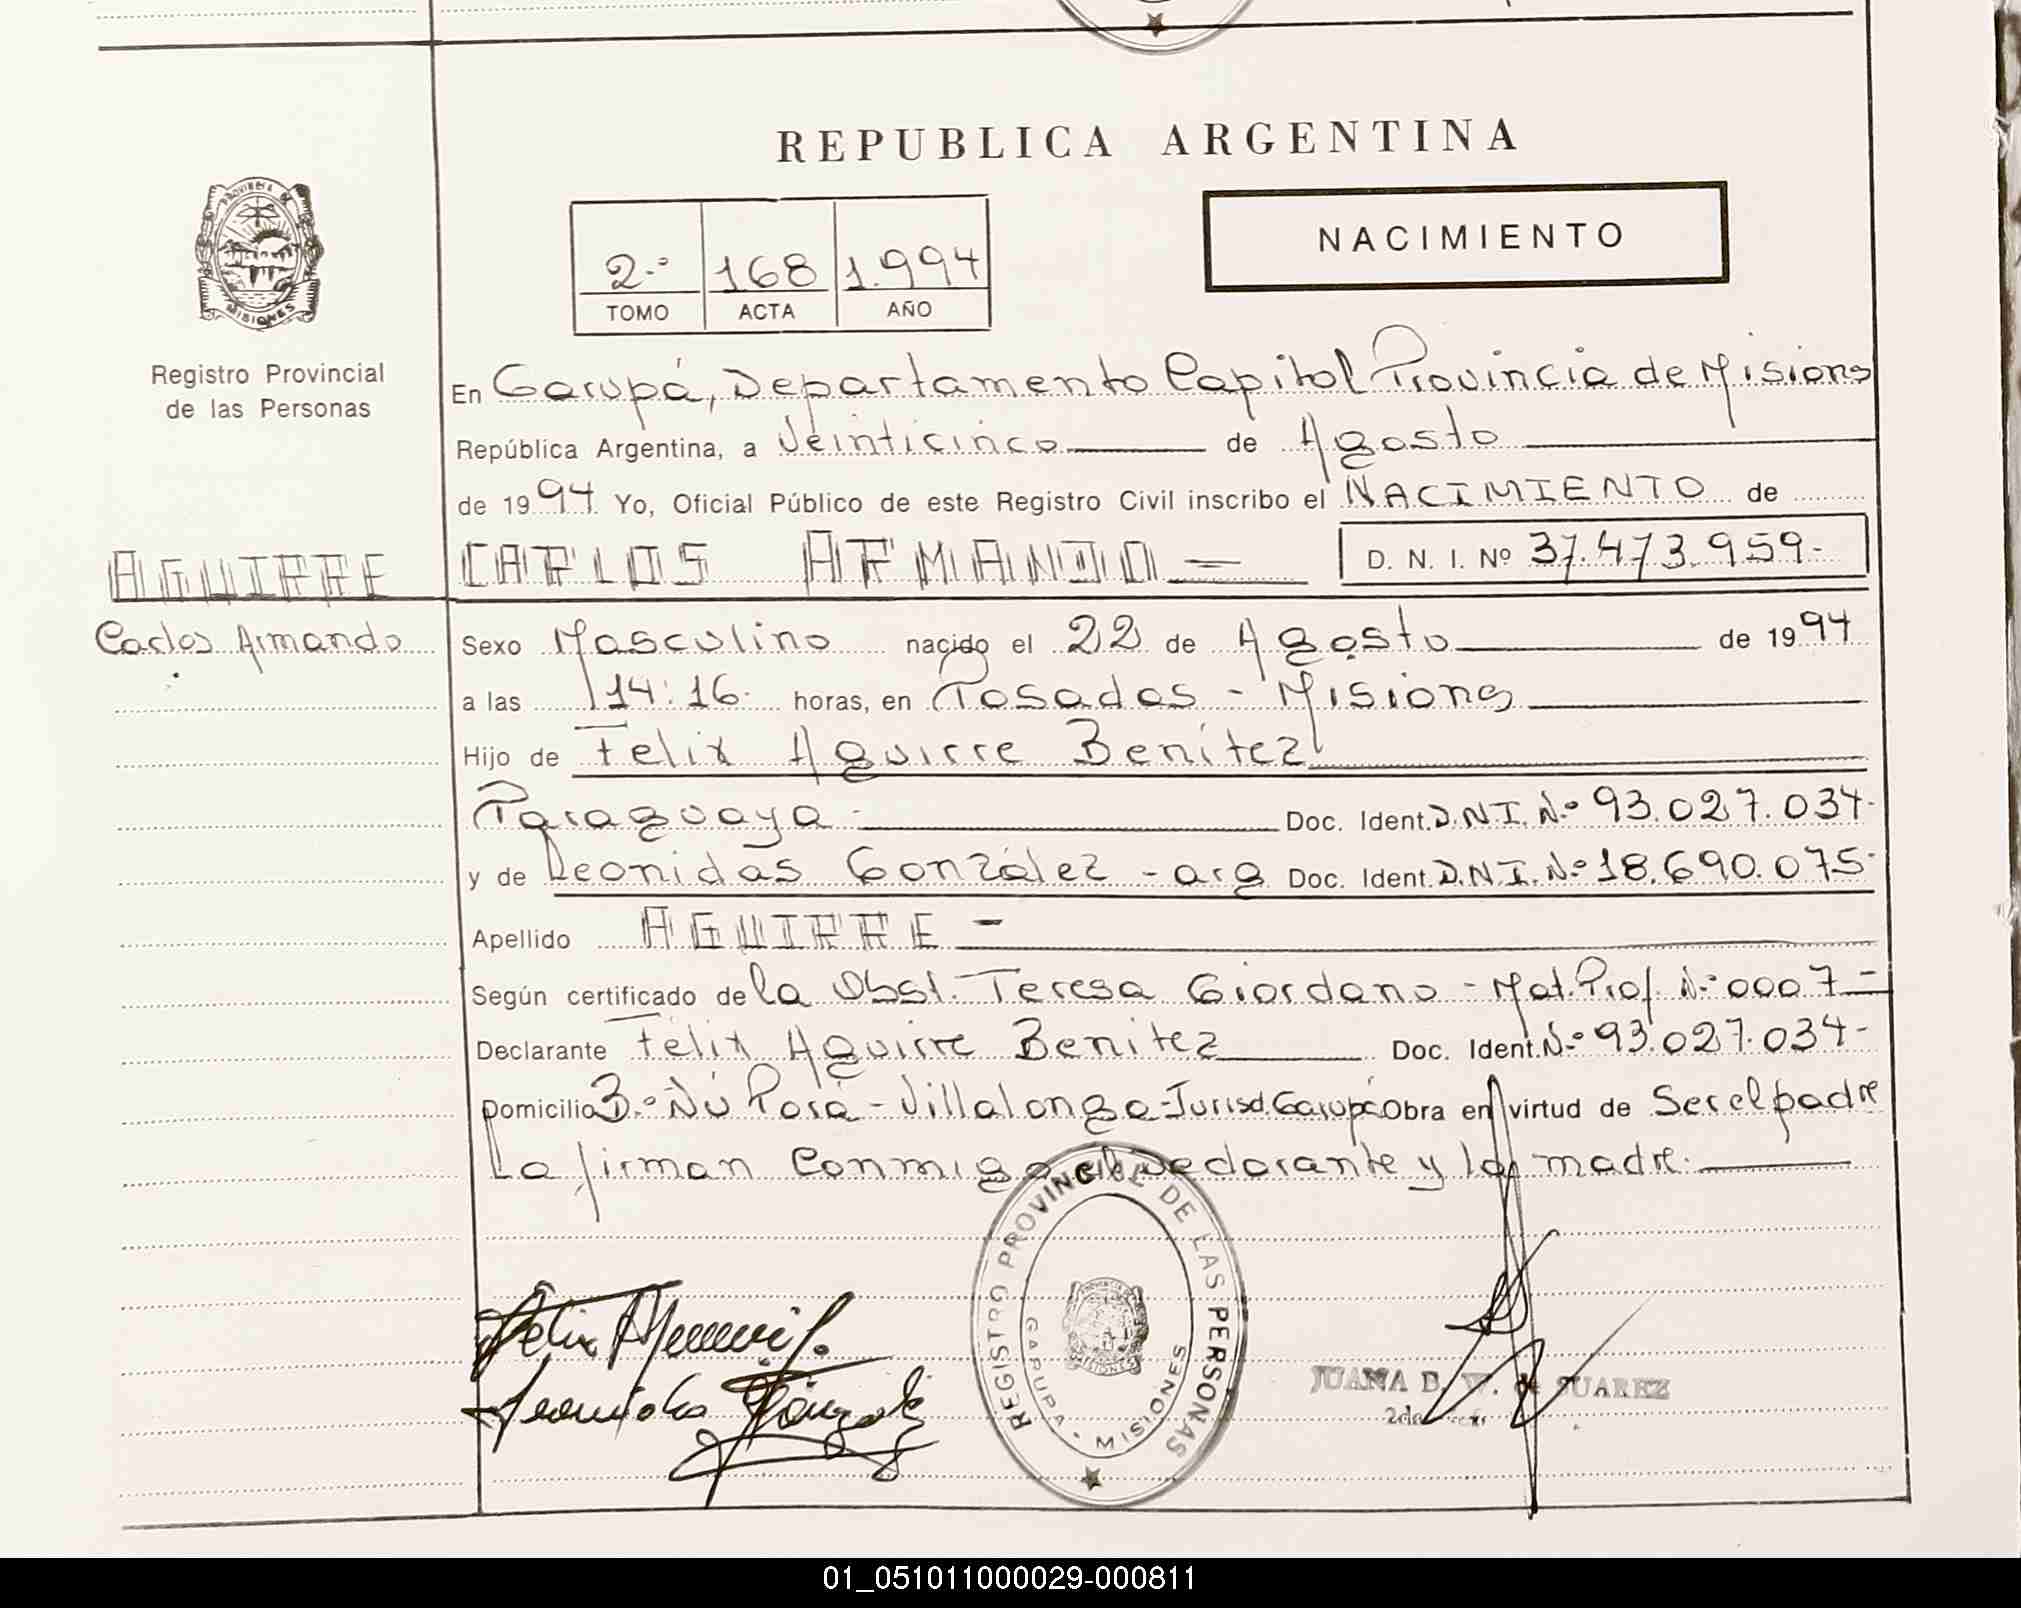 REPUBLICA ARGENTINA
PROVINCIA DE
MISIONES
Registro Provincial
de las Personas
2.º 168 1.994
TOMO ACTA AÑO
NACIMIENTO
En Garupá, Departamento Capital Provincia de Misiones
República Argentina, a Veinticinco de Agosto
de 1994 Yo, Oficial Público de este Registro Civil inscribo el NACIMIENTO de
AGUIRRE CARLOS ARMANDO D. N. I. Nº 37.473.959-
Carlos Armando Sexo Masculino nacido el 22 de Agosto de 1994
a las 14:16 horas, en Posadas - Misiones
Hijo de Felix Aguirre Benítez
Paraguaya Doc. Ident. D.N.I. Nº 93.027.034-
y de Leonidas González - arg Doc. Ident. D.N.I. Nº 18.690.075-
Apellido AGUIRRE -
Según certificado de la Obst. Teresa Giordano - Mat. Prof. Nº 0007 -
Declarante Félix Aguirre Benitez Doc. Ident. Nº 93.027.034-
Domicilio Bº Ñú Porá - Villalonga - Jurisd. Garupá Obra en virtud de Ser el padre
La firman Conmigo el Declarante y la madre.
REGISTRO PROVINCIAL DE LAS PERSONAS
GARUPA - MISIONES
MISIONES
Felix
Leonidas Gónzalez
JUANA B. W. de SUAREZ
01_051011000029-000811